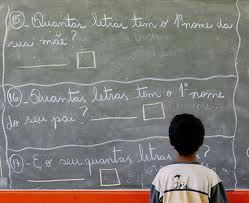 15 - Quantas letras tem o 1º nome da
sua mãe?
16 - Quantas letras tem o 1º nome
do seu pai?
17 - E o seu quantas letras